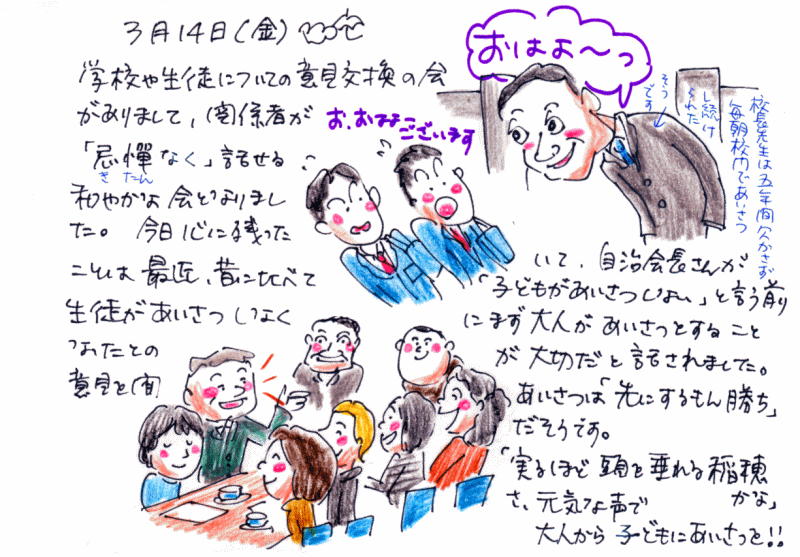 3月14日(金)
学校や生徒についての意見交換の会
がありまして、関係者が
「忌憚なく」話せる
きたん
和やかな会となりまし
た。今日心に残った
ことは最近、昔に比べて
生徒があいさつしなく
なったとの
意見を聞
いて、自治会長さんが
「子どもがあいさつしない」と言う前
にまず大人があいさつをすること
が大切だと話されました。
あいさつは「先にするもん勝ち」
だそうです。
「実るほど頭を垂れる稲穂
かな」
さ、元気な声で
大人から子どもにあいさつを!!
おはよ〜っ
お、おはよ
ございます
校長先生は五年間欠かさず
毎朝校門であいさつ
し続け
られた
そう
です